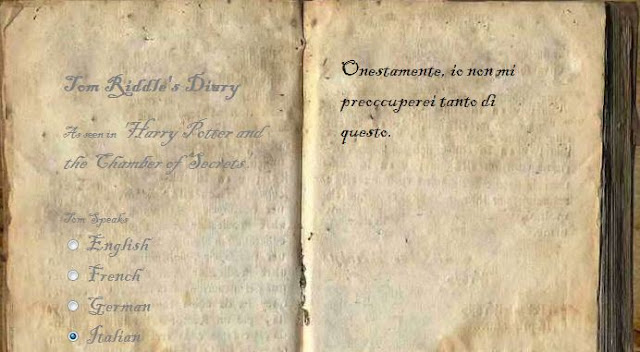 Tom Riddle's Diary
As seen in 'Harry Potter and
the Chamber of Secrets'
Tom Speaks
English
French
German
Italian
Onestamente, io non mi
preoccuperei tanto di
questo.